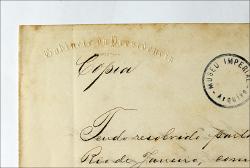 Gabinete da Presidencia
Copia
MUSEU IMPERIAL
Arquivo
Tendo resolvido
Rio de Janeiro,